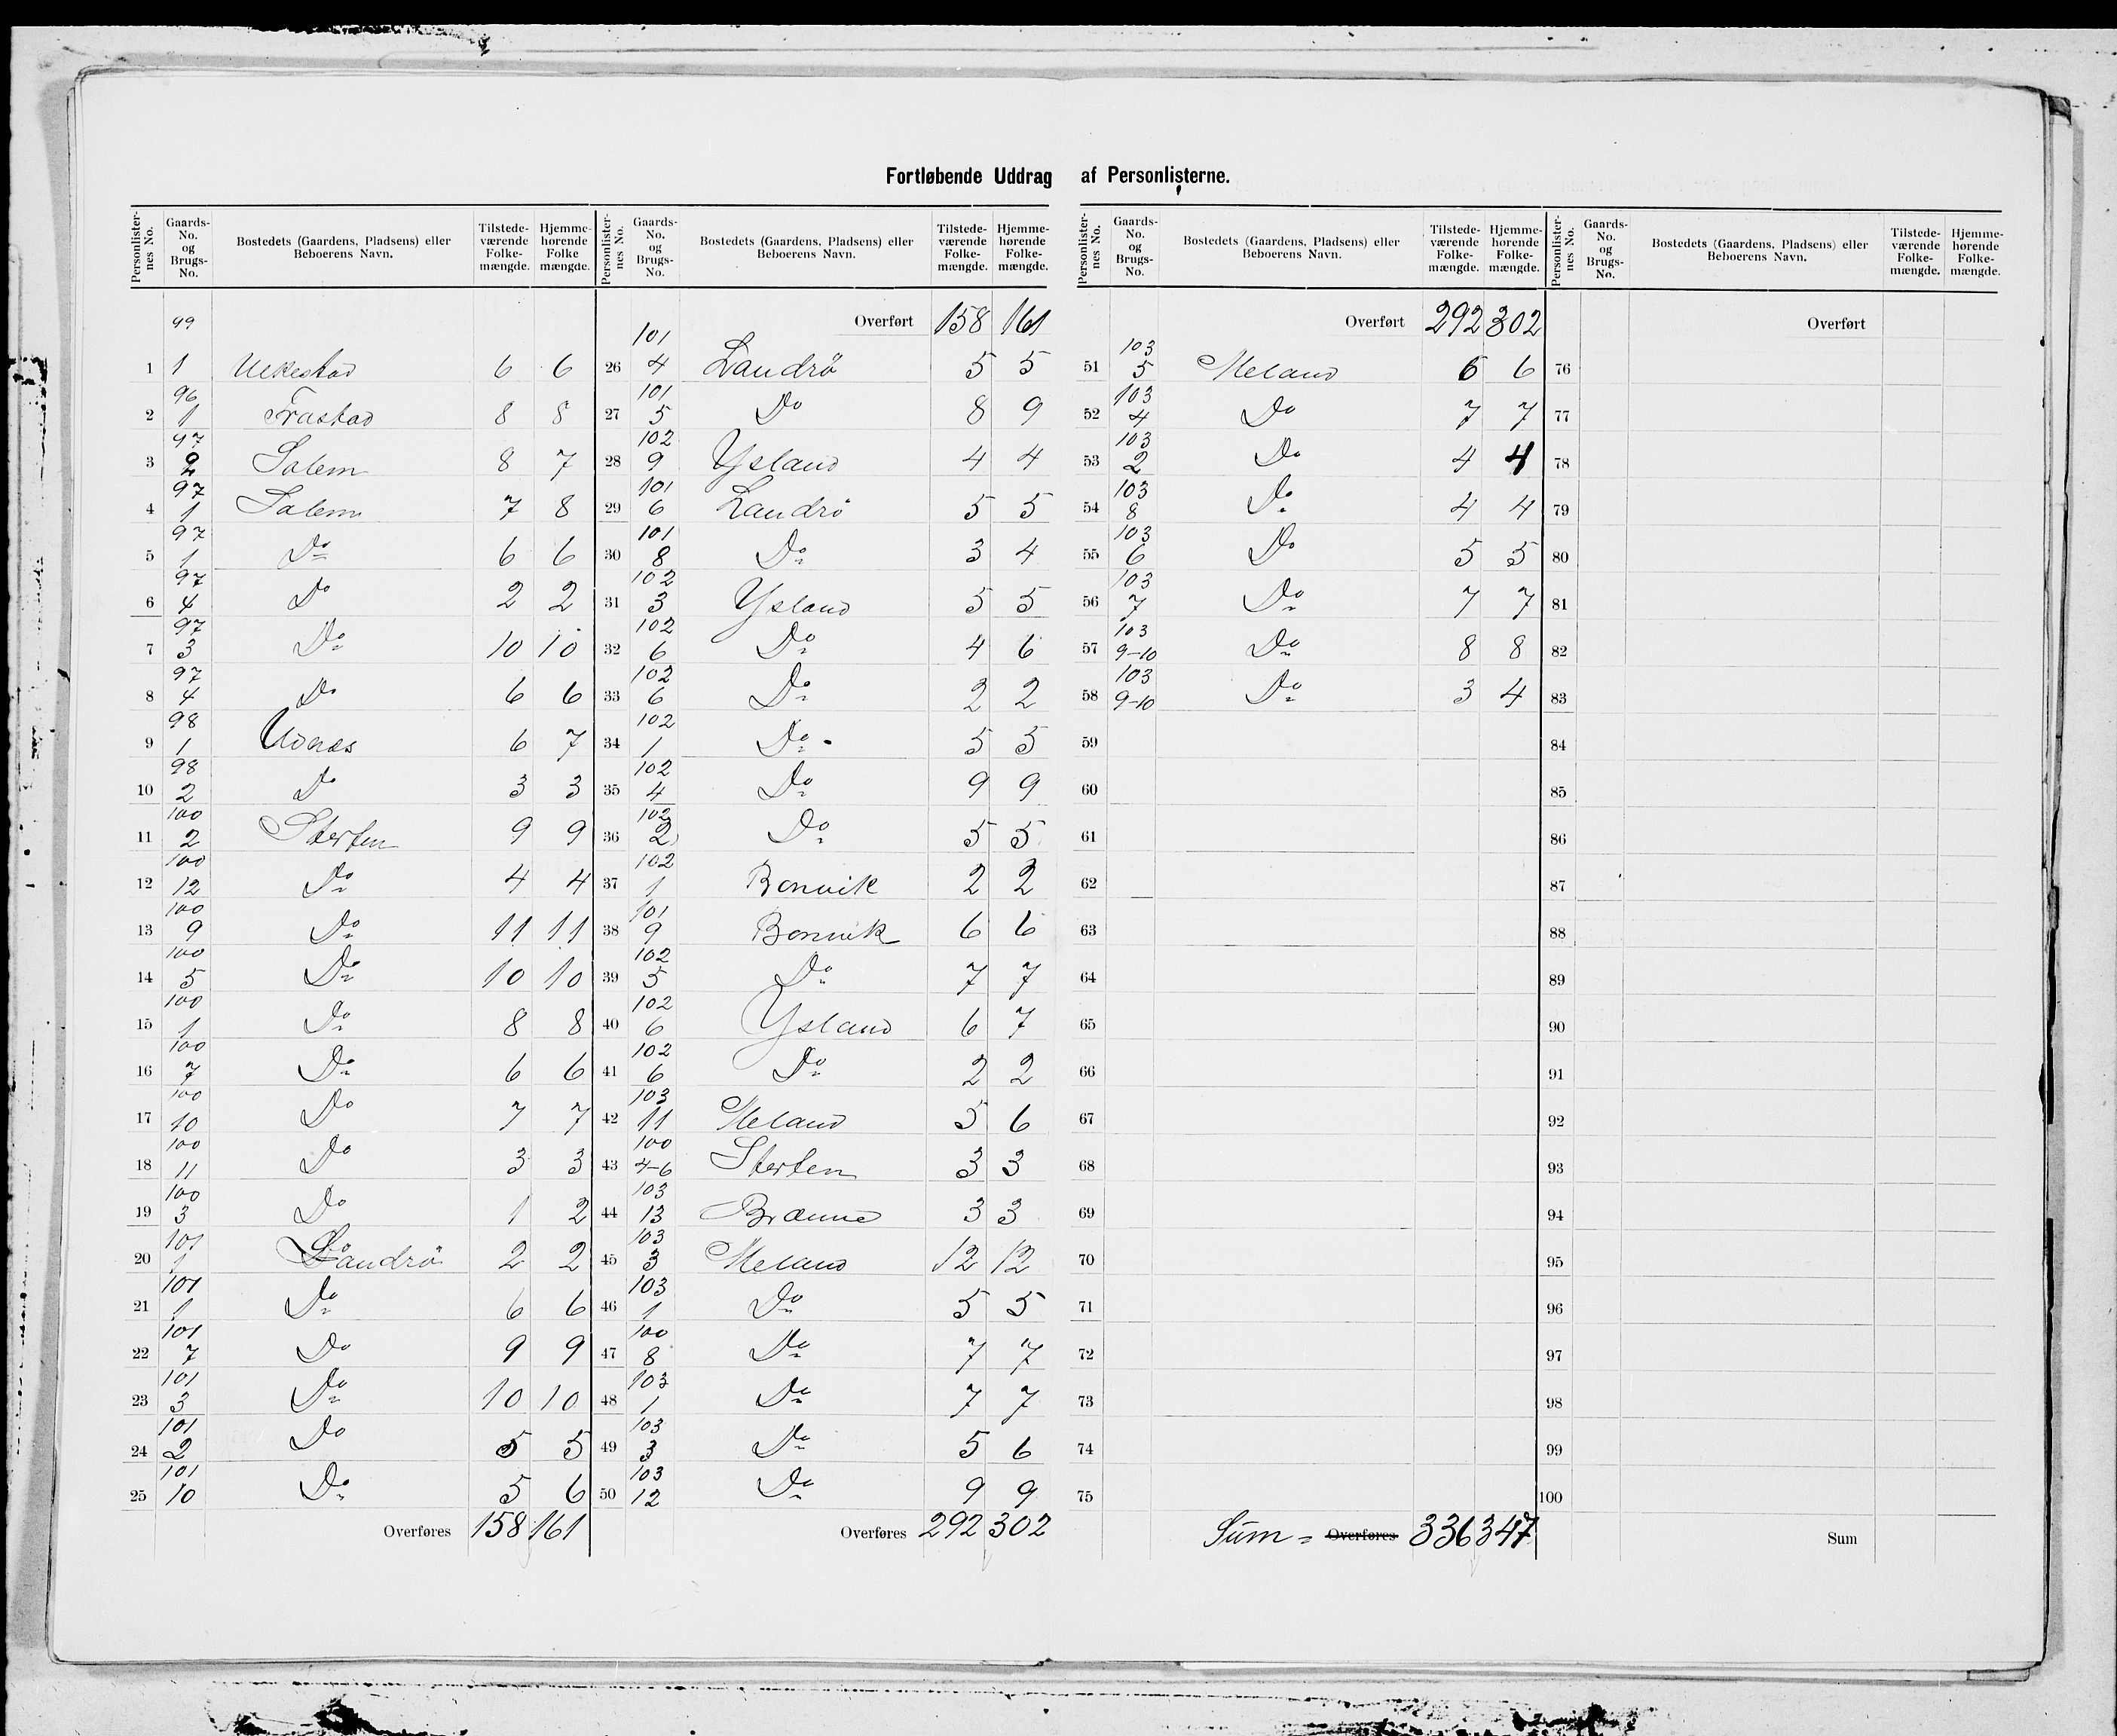 Fortløbende Uddrag af Personlisterne.
Personlisternes No. Gaards-No. og Brugs-No. Bostedets (Gaardens, Pladsens) eller Beboerens Navn. Tilstedeværende Folkemængde. Hjemmehørende Folke mængde.
1 99 1 6 6
2 96 1 Frastad 8 8
3 97 2 Solem 8 7
4 97 1 Solem 7 8
5 97 1 Do 6 6
6 97 4 Do 2 2
7 97 3 Do 10 10
8 97 4 Do 6 6
9 98 1 Udnæs 6 7
10 98 2 Do 3 3
11 100 2 Sterten 9 9
12 100 12 Do 4 4
13 100 9 Do 11 11
14 100 5 Do 10 10
15 100 1 Do 8 8
16 100 7 Do 6 6
17 100 10 Do 7 7
18 100 11 Do 3 3
19 100 3 Do 1 2
20 101 1 Landrö 2 2
21 101 1 Do 6 6
22 101 7 Do 9 9
23 101 3 Do 10 10
24 101 2 Do 5 5
25 101 10 Do 5 6
Overføres 158 161
Personlisternes No. Gaards-No. og Brugs-No. Bostedets (Gaardens, Pladsens) eller Beboerens Navn. Tilstedeværende Folkemængde. Hjemmehørende Folkemængde.
Overført 158 161
26 101 4 Landrö 5 5
27 101 5 Do 8 9
28 102 9 Ysland 4 4
29 101 6 Landrö 5 5
30 101 8 Do 3 4
31 102 3 Ysland 5 5
32 102 6 Do 4 6
33 102 6 Do 2 2
34 102 1 Do 5 5
35 102 4 Do 9 9
36 102 2 Do 5 5
37 102 1 Bonvik 2 2
38 101 9 Bonvik 6 6
39 102 5 Do 7 7
40 102 6 Ysland 6 7
41 102 6 Do 2 2
42 103 11 Meland 5 6
43 100 4-6 Sterten 3 3
44 103 13 Brænne 3 3
45 103 3 Meland 12 12
46 103 1 Do 5 5
47 100 8 Do 7 7
48 103 1 Do 7 7
49 103 3 Do 5 6
50 103 12 Do 9 9
Overføres 292 302
Personlisternes No. Gaards-No. og Brugs-No. Bostedets (Gaardens, Pladsens) eller Beboerens Navn. Tilstedeværende Folkemængde. Hjemmehørende Folkemængde.
Overført 292 302
51 103 5 Meland 6 6
52 103 4 Do 7 7
53 103 2 Do 4 4
54 103 8 Do 4 4
55 103 6 Do 5 5
56 103 7 Do 7 7
57 103 9-10 Do 8 8
58 103 9-10 Do 3 4
59
60
61
62
63
64
65
66
67
68
69
70
71
72
73
74
75
Sum = Overføres 336 347
Personlisternes No. Gaards-No. og Brugs-No. Bostedets (Gaardens, Pladsens) eller Beboerens Navn. Tilstedeværende Folkemængde. Hjemmehørende Folkemængde.
Overført
76
77
78
79
80
81
82
83
84
85
86
87
88
89
90
91
92
93
94
95
96
97
98
99
100
Sum